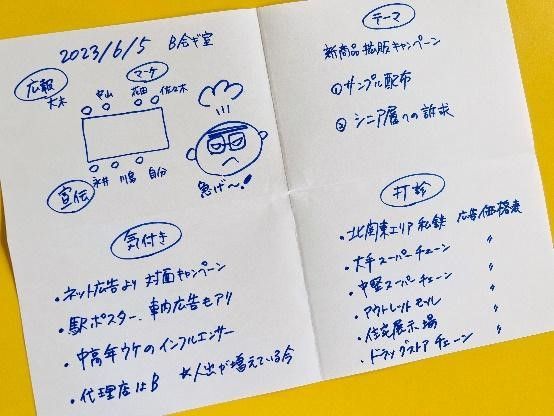 2023/6/5 B会ギ室
広報
マーケ
大木 中山 花田 佐々木
宣伝
永井 川島 自分
急げ〜!
テーマ
新商品拡販キャンペーン
①サンプル配布
②シニア層への訴求
気付き
・ネット広告より対面キャンペーン
・駅ポスター、車内広告もアリ
・中高年ウケのインフルエンサー
・代理店はB ※人出が増えている今
打診
・北関東エリア私鉄 広告価格表
・大手スーパーチェーン 〃
・中堅スーパーチェーン 〃
・アウトレットモール 〃
・住宅展示場 〃
・ドラッグストアチェーン 〃